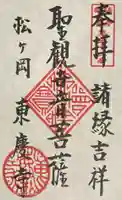 奉拝
諸縁吉祥
聖観音菩薩
松ヶ岡
東慶寺